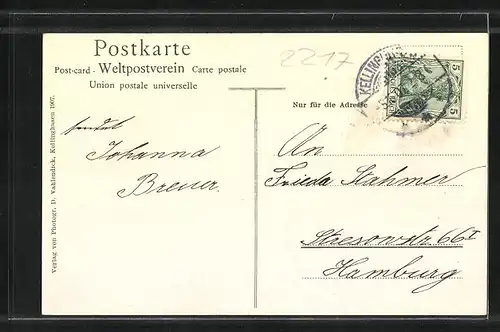 Postkarte
Post-card - Weltpostverein Carte postale
Union postale universelle
2217
KELLINGHUSEN
5
5
Nur für die Adresse
sendet
Johanna
Breuer.
An
Frieda Stahmer
Stresowstr. 66 I
Hamburg
Verlag von Photogr. D. Vaalendick, Kellinghusen 1907.